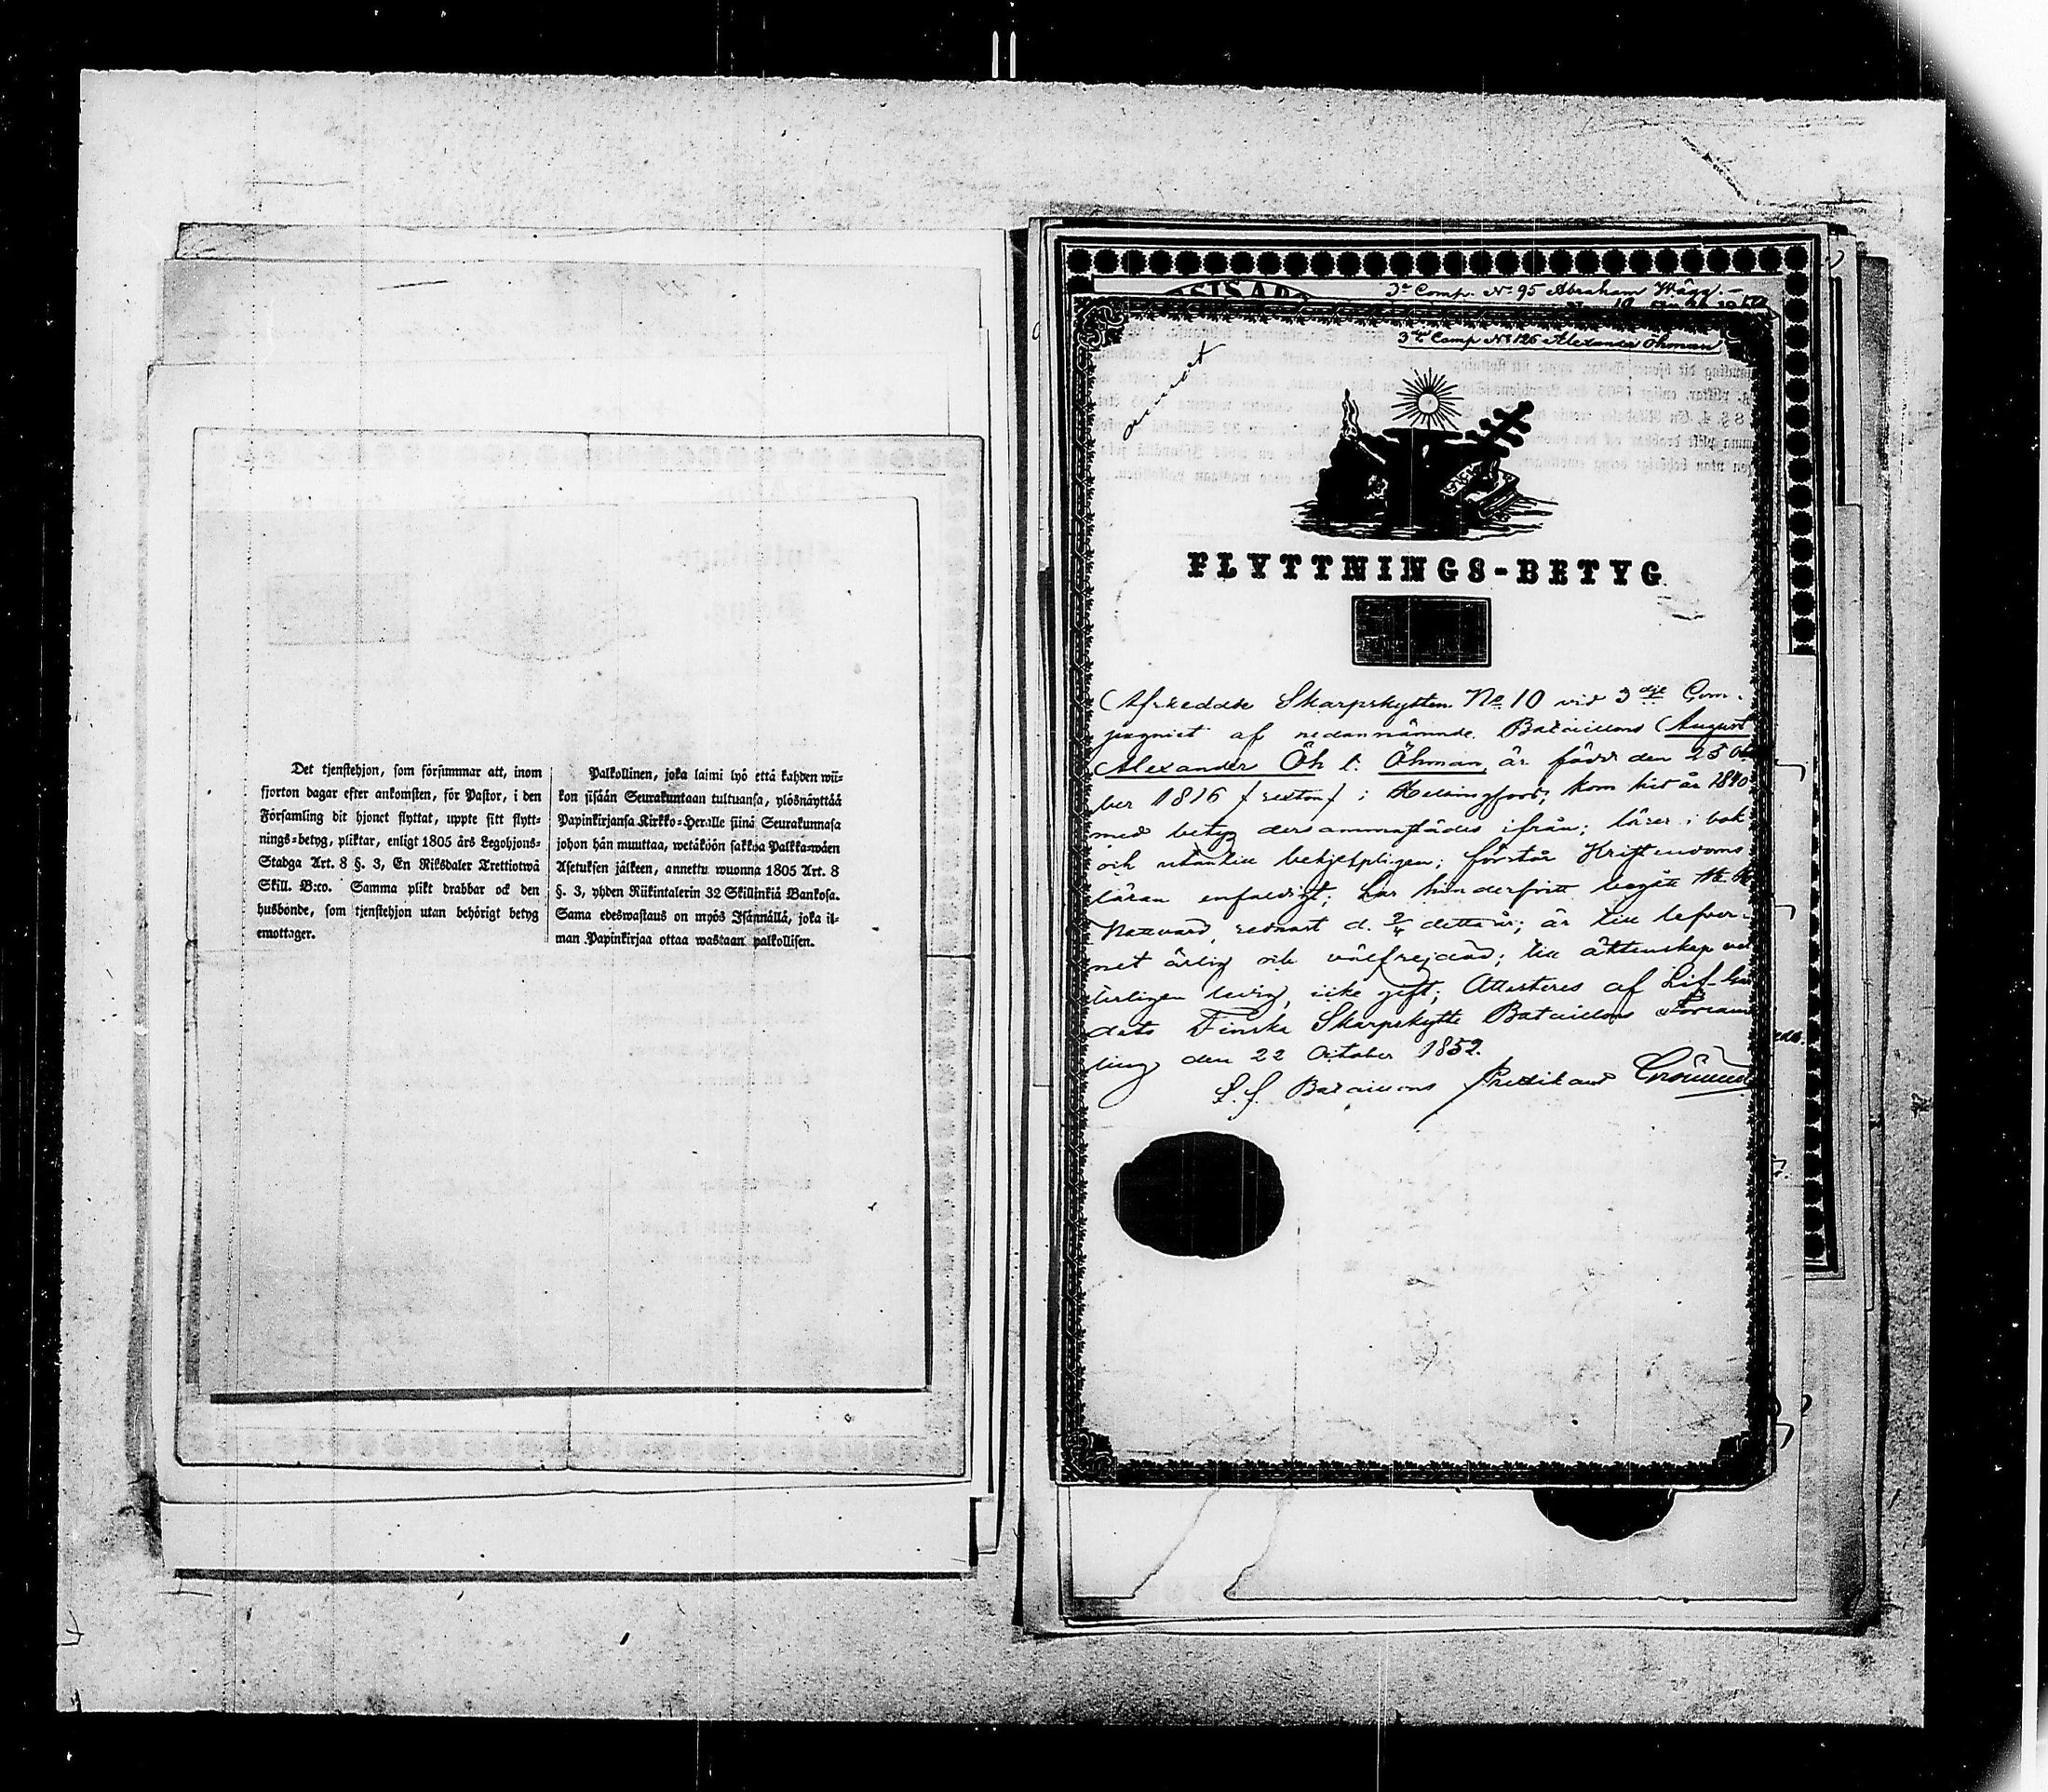 Det tjenstehjon, som försummar att, inom
fjorton dagar efter ankomsten, för Pastor, i den
Församling dit hjonet flyttat, uppte sitt flytt-
nings-betyg, pliktar, enligt 1805 års Legohjons-
Stadga Art. 8 §. 3, En Riksdaler Trettiotwå
Skill. B:co. Samma plikt drabbar ock den
husbonde, som tjenstehjon utan behörigt betyg
emottager.
Palkollinen, joka laimi lyö että kahden wii-
kon sisään Seurakuntaan tultuansa, ylösnäyttää
Papinkirjansa Kirkko-Heralle siinä Seurakunnasa
johon hän muuttaa, wetäköön sakkoa Palkka-wäen
Asetuksen jälkeen, annettu wuonna 1805 Art. 8
§. 3, yhden Riikintalerin 32 Skillinkiä Bankosa.
Sama edeswastaus on myös Isännällä, joka il-
man Papinkirjaa ottaa wastaan palkollisen.
3e Comp. No 95 Abraham Wägg.
3dje Comp No 126 Alexander Öhman
FLYTTNINGS-BETYG
Afskedade Skarpskytten No 10 vid 3dje Com-
pagniet af nedannämnde Bataillons August
Alexander Öh l. Öhman, är född den 25 Octo
ber 1816 (sexton) i Helsingfors, kom hit år 1840
med betyg dersammastädes ifrån; läser i bok
och utantill behjelpligen; förstår Kristendoms
läran enfaldigt; har hinderfritt begått H. H.
Nattvard, sednast d. 2/4 detta år; är till lefver-
net ärlig och välfrejdad; till äktenskap
ledig, icke gift; Attesteras af Lif-Gar
dets Finska Skarpskytte Bataillons Försam
ling den 22 October 1852.
Bataillons Predikant